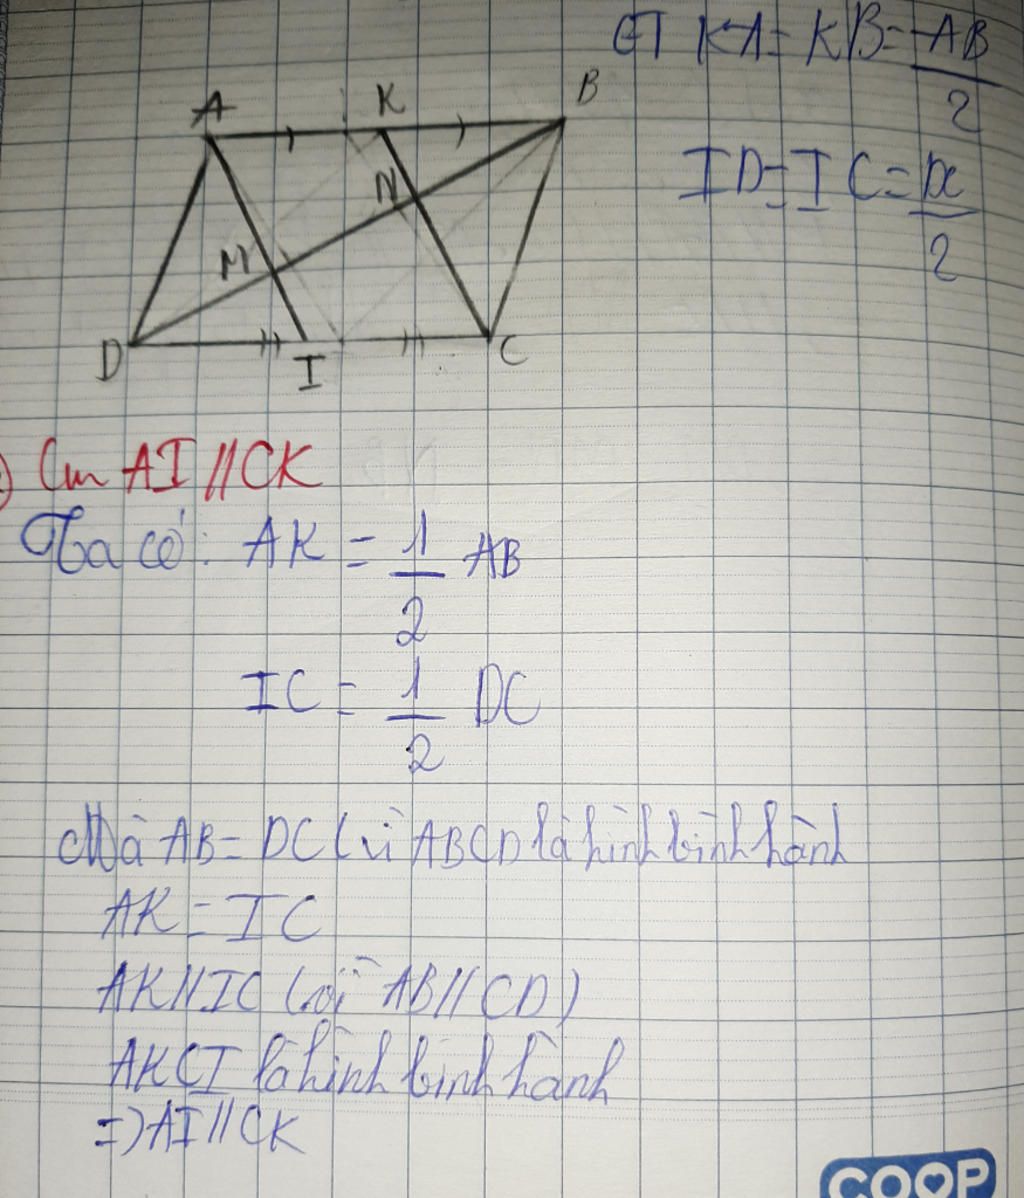 GT KA = KB = AB/2
ID = IC = DC/2
A K B
N
M
D I C
) Cm AI // CK
Ta có: AK = 1/2 AB
IC = 1/2 DC
Mà AB = DC (vì ABCD là hình bình hành
AK = IC
AK // IC (vì AB // CD)
AKCI là hình bình hành
=> AI // CK
COOP